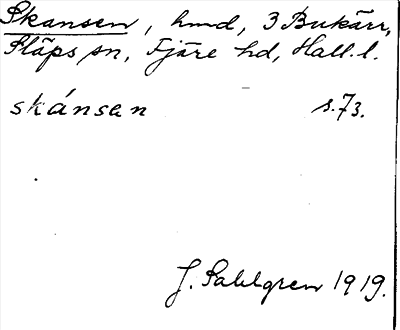 Skansen, hmd, 3 Bukärr,
Släps sn, Fjäre hd, Hall. l.
skánsen s. 73.
J. Sahlgren 1919.